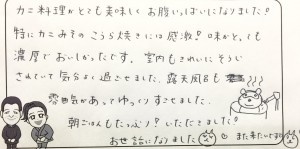 カニ料理がとても美味しくお腹いっぱいになりました!
特にカニみその こうら焼きには感激!味がとっても
濃厚でおいしかったです。室内もきれいにそうじ
されていて気分よく過ごせました。露天風呂も
雰囲気があってゆっくりすごせました。
朝ごはんもたっぷり!いただきました!
お世話になりました また来たいです